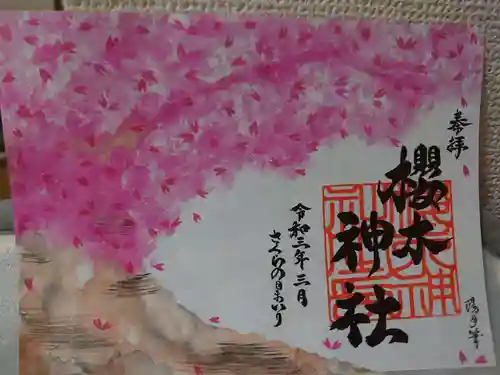 奉拝
櫻木
神社
令和三年三月
さくらの日まいり